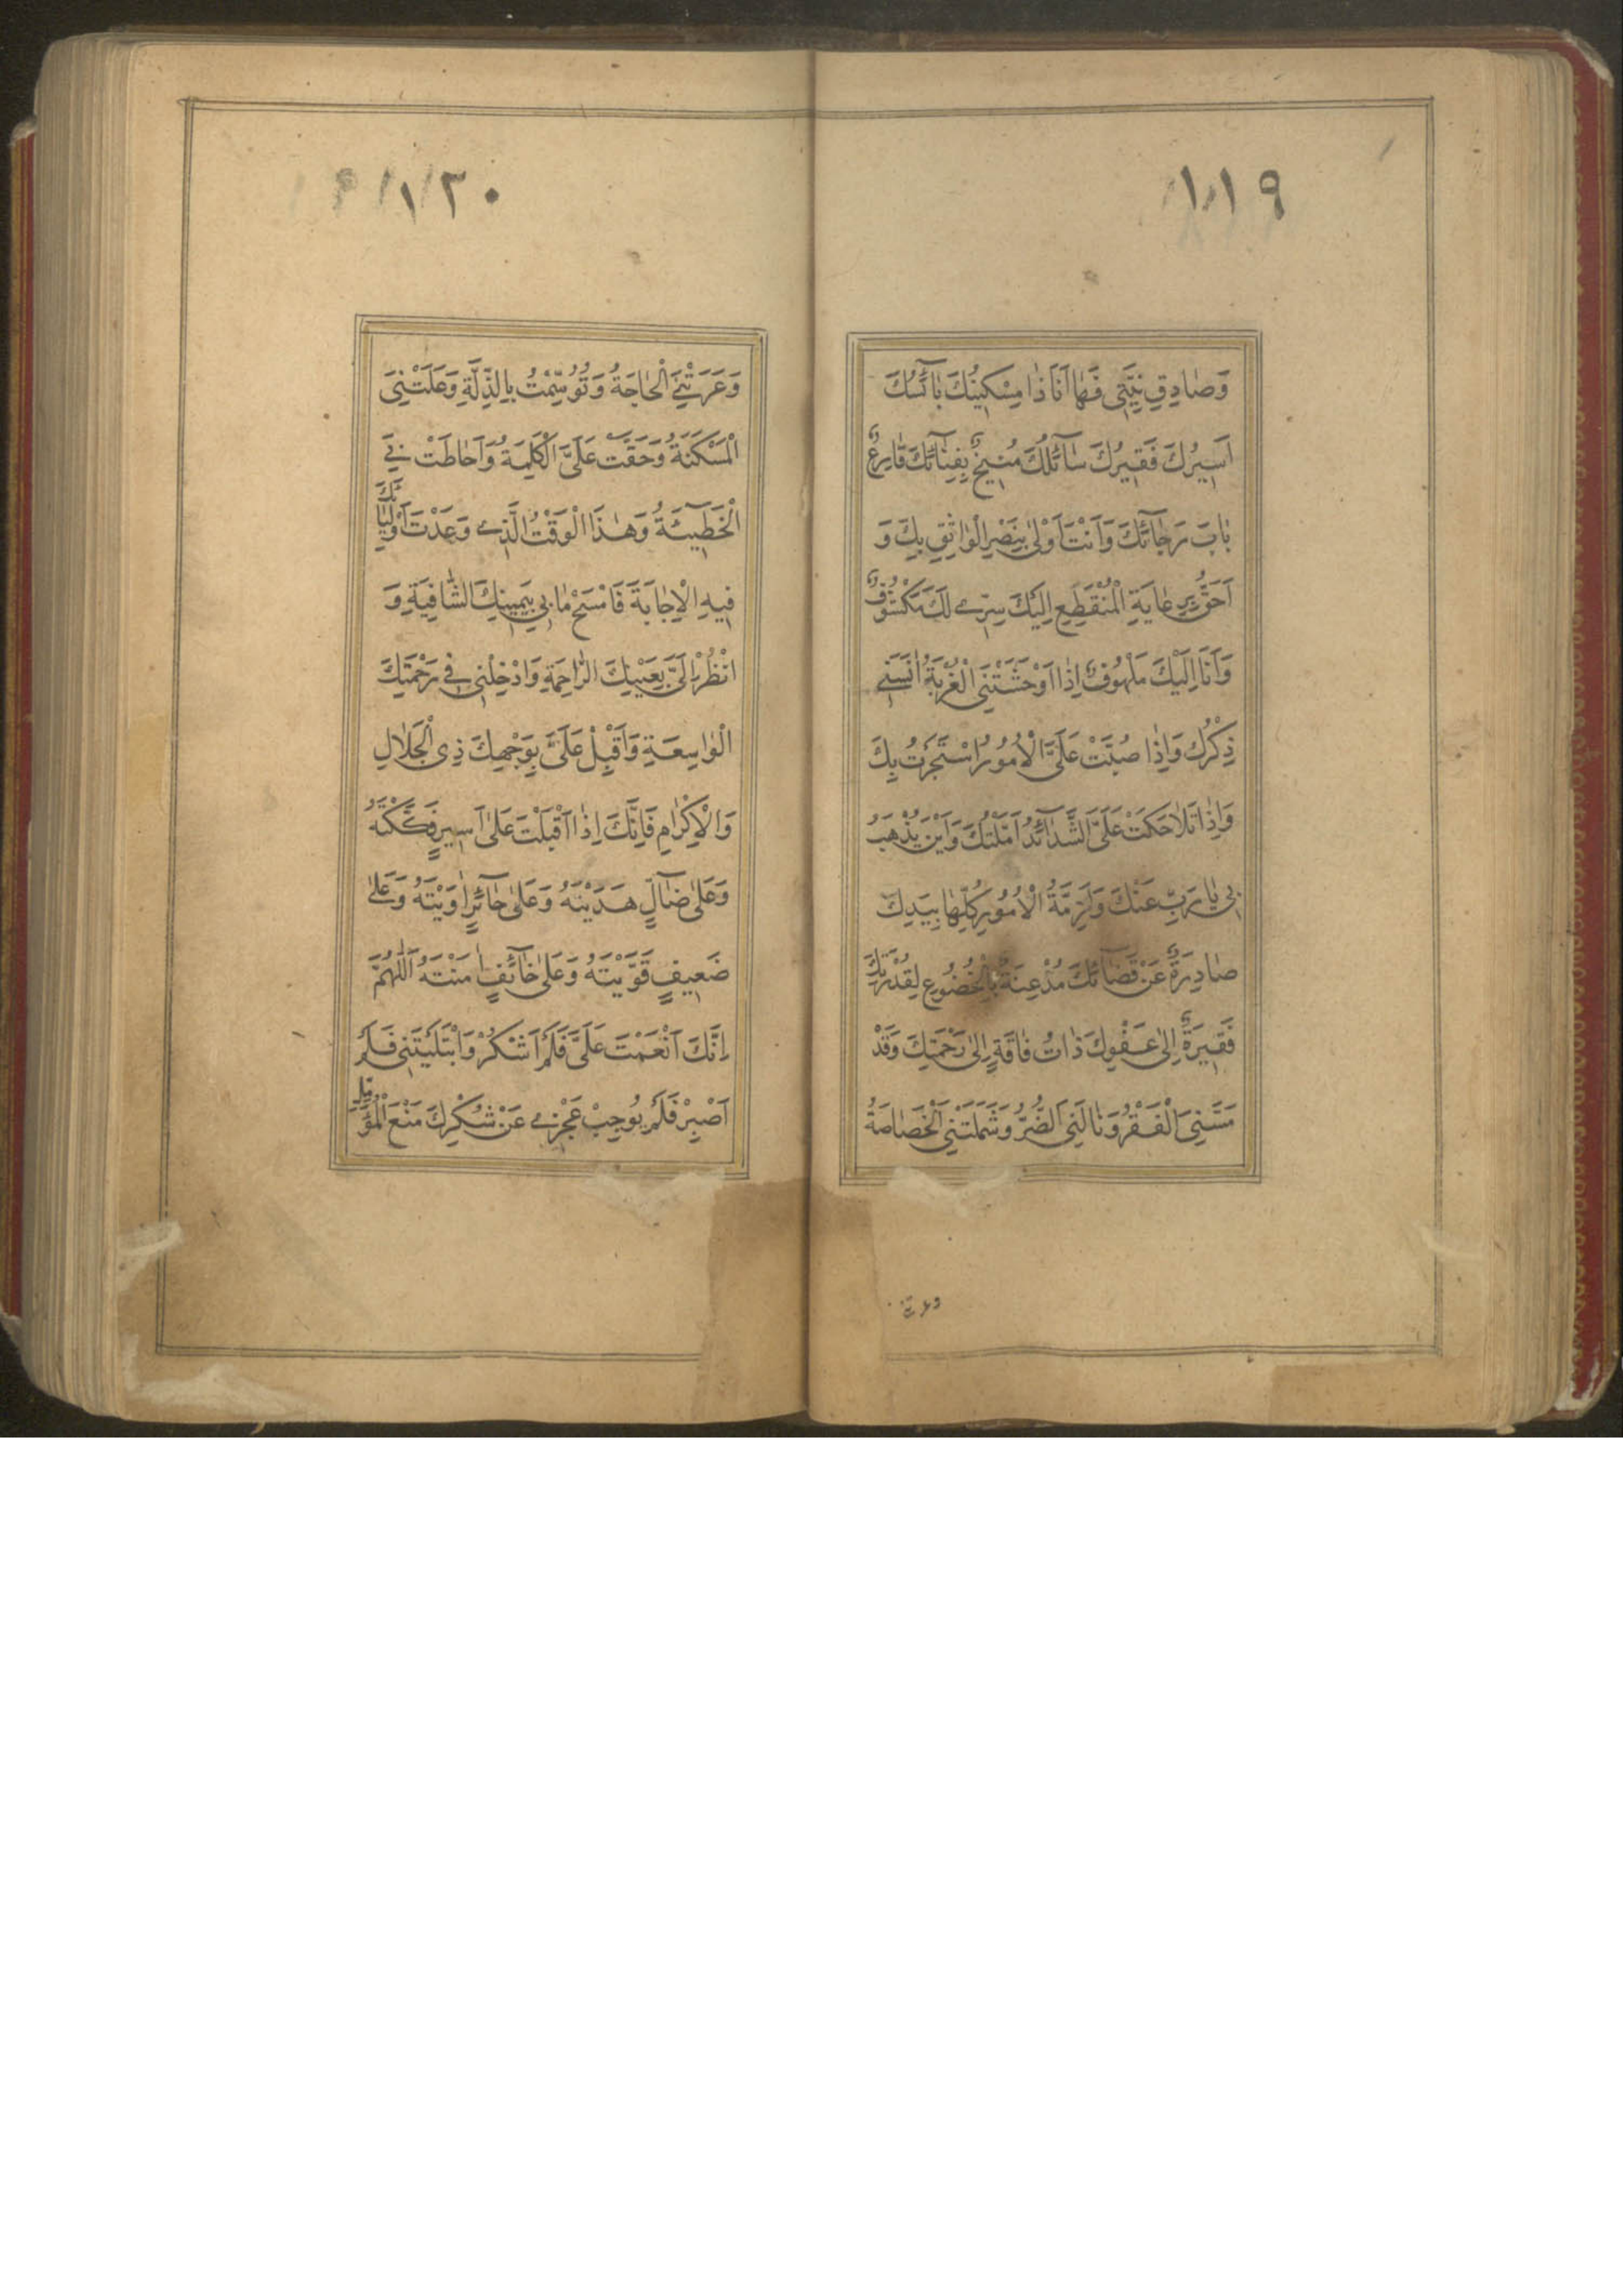 ١١٩
وَصَادِقِ نِيَّتِي فَهَا اَنَا ذَا مِسْكِينُكَ بَآئِسُكَ
اَسِيرُكَ فَقِيرُكَ سَآئِلُكَ مُنِيخٌ بِفِنَآئِكَ قَارِعٌ
بَابَ رَجَآئِكَ وَاَنْتَ اَوْلَى بِنَصْرِ الْوَاثِقِ بِكَ وَ
اَحَقُّ بِرِعَايَةِ الْمُنْقَطِعِ اِلَيْكَ سِرِّي لَكَ مَكْشُوفٌ
وَاَنَا اِلَيْكَ مَلْهُوفٌ اِذَا اَوْحَشَتْنِي الْغُرْبَةُ اٰنَسَنِي
ذِكْرُكَ وَاِذَا صُبَّتْ عَلَيَّ الْاُمُورُ اسْتَجَرْتُ بِكَ
وَاِذَا تَلَاحَكَتْ عَلَيَّ الشَّدَآئِدُ اَمَّلْتُكَ وَاَيْنَ يُذْهَبُ
بِي يَا رَبِّ عَنْكَ وَاَزِمَّةُ الْاُمُورِ كُلِّهَا بِيَدِكَ
صَادِرَةٌ عَنْ قَضَآئِكَ مُذْعِنَةٌ بِالْخُضُوعِ لِقُدْرَتِكَ
فَقِيرَةٌ اِلَى عَفْوِكَ ذَاتُ فَاقَةٍ اِلَى رَحْمَتِكَ وَقَدْ
مَسَّنِيَ الْفَقْرُ وَنَالَنِيَ الضُّرُّ وَشَمَلَتْنِي الْخَصَاصَةُ
وعرتنے
١٢٠
وَعَرَتْنِي الْحَاجَةُ وَتَوَسَّمْتُ بِالذِّلَّةِ وَعَلَتْنِيَ
الْمَسْكَنَةُ وَحَقَّتْ عَلَيَّ الْكَلِمَةُ وَاَحَاطَتْ بِيَ
الْخَطِيئَةُ وَهٰذَا الْوَقْتُ الَّذِي وَعَدْتَ اَوْلِيَآئَكَ
فِيهِ الْاِجَابَةَ فَامْسَحْ مَا بِي بِيَمِينِكَ الشَّافِيَةِ وَ
انْظُرْ اِلَيَّ بِعَيْنِكَ الرَّاحِمَةِ وَادْخِلْنِي فِي رَحْمَتِكَ
الْوَاسِعَةِ وَاَقْبِلْ عَلَيَّ بِوَجْهِكَ ذِي الْجَلَالِ
وَالْاِكْرَامِ فَاِنَّكَ اِذَا اَقْبَلْتَ عَلَى اَسِيرٍ فَكَكْتَهُ
وَعَلَى ضَآلٍّ هَدَيْتَهُ وَعَلَى حَآئِرٍ اٰوَيْتَهُ وَعَلَى
ضَعِيفٍ قَوَّيْتَهُ وَعَلَى خَآئِفٍ اٰمَنْتَهُ اَللّٰهُمَّ
اِنَّكَ اَنْعَمْتَ عَلَيَّ فَلَمْ اَشْكُرْ وَابْتَلَيْتَنِي فَلَمْ
اَصْبِرْ فَلَمْ يُوجِبْ عَجْزِي عَنْ شُكْرِكَ مَنْعَ الْمُؤَمَّلِ